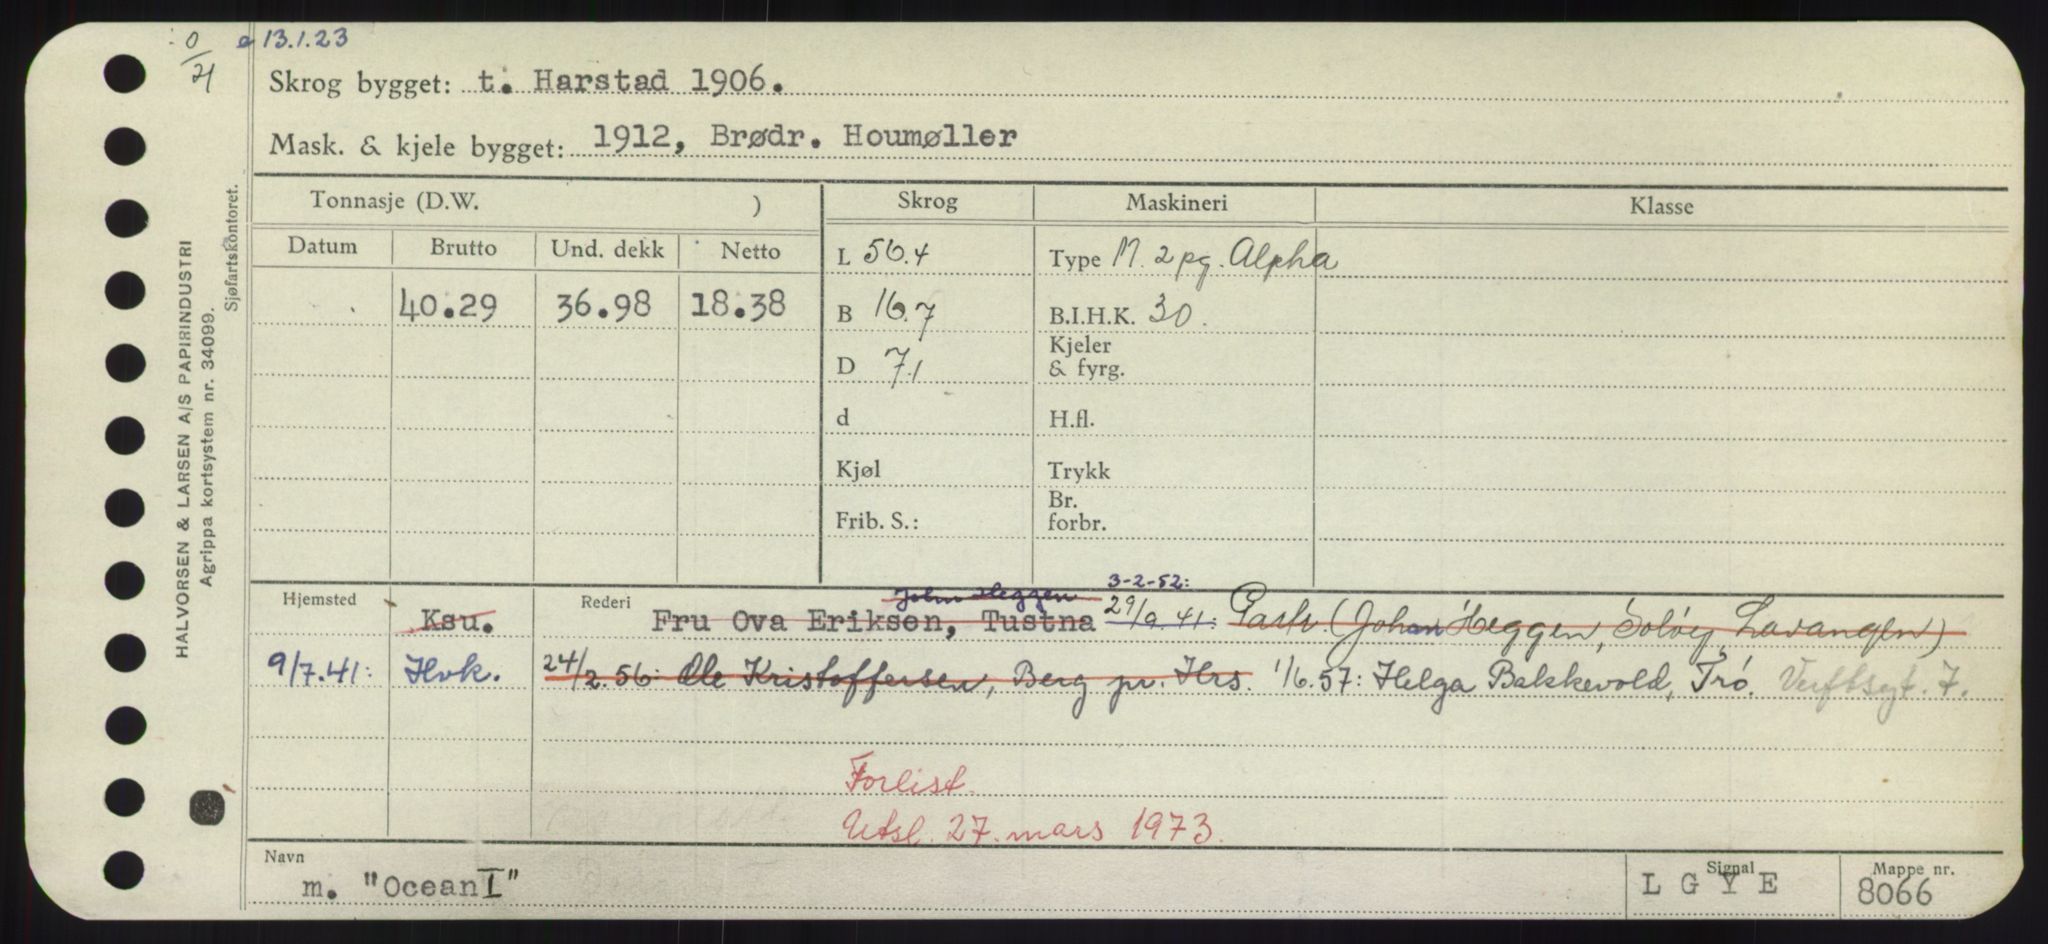 0/21 13.1.23
Skrog bygget: t. Harstad 1906.
Mask. & kjele bygget: 1912, Brødr. Houmøller
Tonnasje (D.W. ) Skrog Maskineri Klasse
Datum Brutto Und. dekk Netto L 56.4 Type M. 2 pg. Alpha
40.29 36.98 18.38 B 16.7 B.I.H.K. 30.
D 7.1 Kjeler & fyrg.
d H.fl.
Kjøl Trykk
Frib. S.: Br. forbr.
John Heggen 3-2-52:
Hjemsted Ksu. Rederi Fru Ova Eriksen, Tustna 29/9.41: (Johan Heggen, Solveig Lavangen)
9/7.41: Hvk. 24/2.56: Ole Kristoffersen, Berg pr. Hrs. 1/6.57: Helga Bakkevold, Trö.
Forlist.
Utsl. 27. mars 1973.
Navn m. "Ocean I" Signal L G Y E Mappe nr. 8066
HALVORSEN & LARSEN A/S PAPIRINDUSTRI
Agrippa kortsystem nr. 34099.
Sjøfartskontoret.